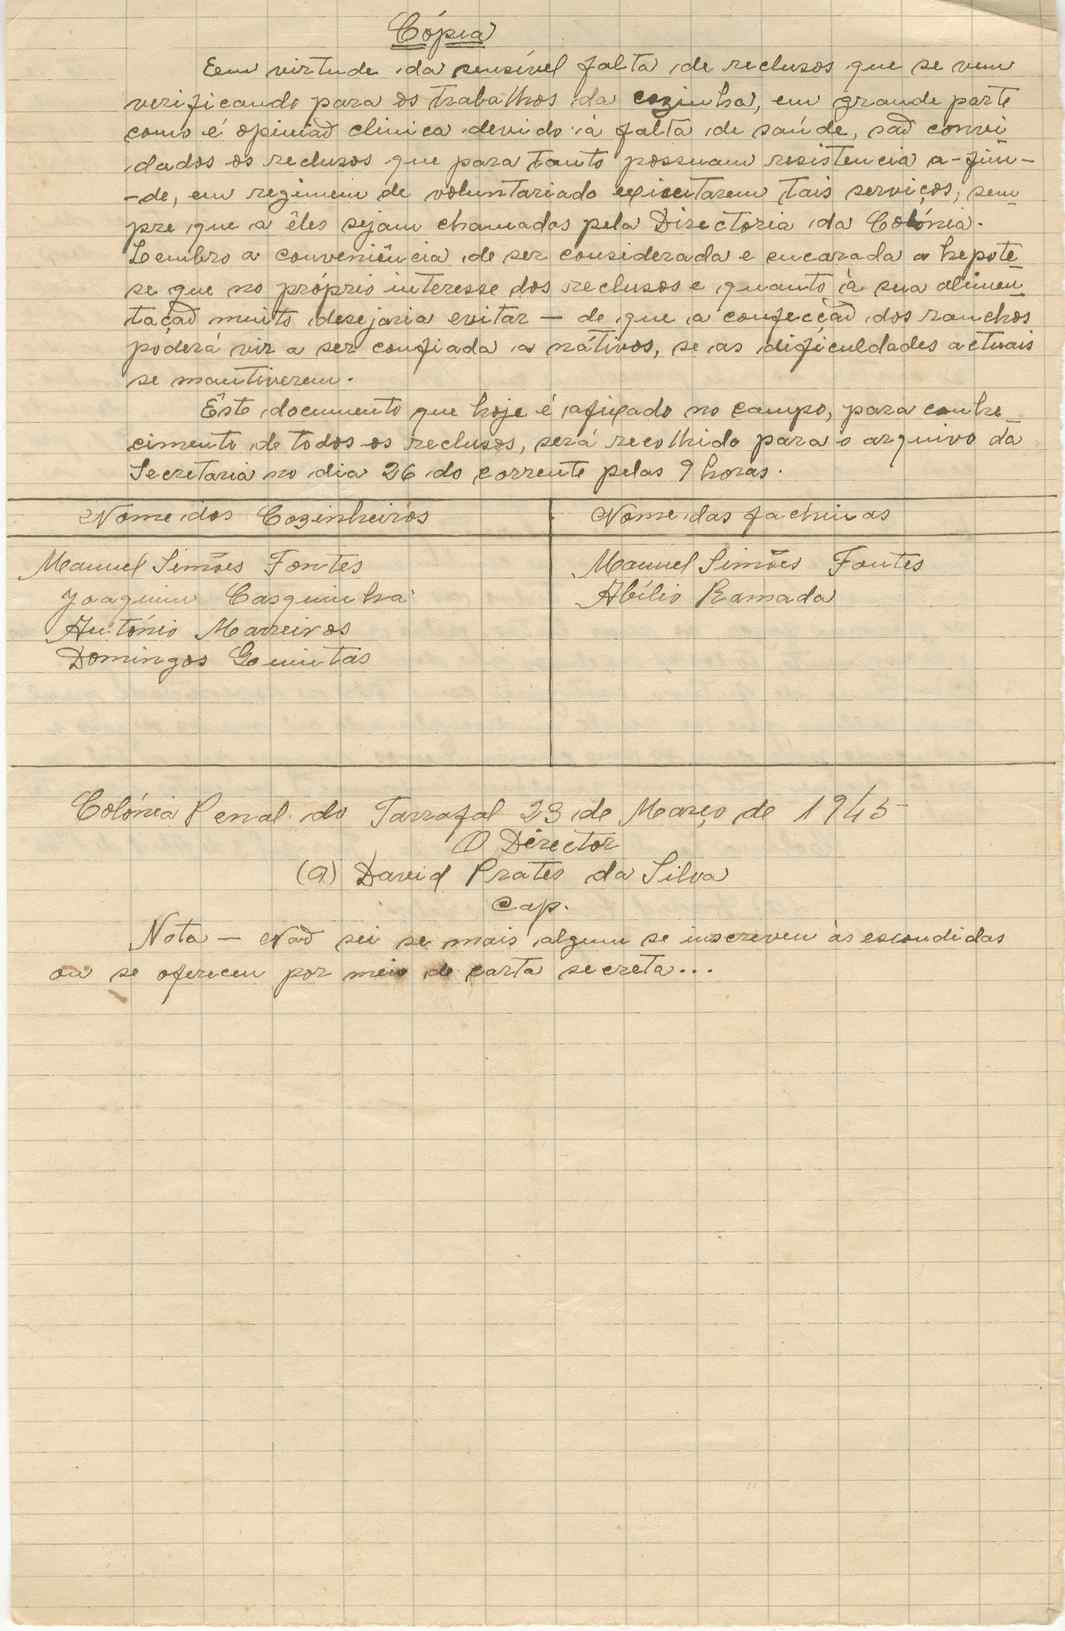 Cópia
Em virtude da sensível falta de reclusos que se vem
verificando para os trabalhos da cozinha, em grande parte
como é opinião clinica devido á falta de saúde, são convi
dados os reclusos que para tanto possuam resistencia a-fim-
-de, em regimem de voluntariado existarem tais serviços, sem
pre que a êles sejam chamados pela Directoria da Colónia.
Lembro a conveniência de ser considerada e encarada a hepote
se que no próprio interesse dos reclusos e quanto á sua alimen
tação muito desejaria evitar — de que a confecção dos ranchos
poderá vir a ser confiada a nátivos, se as dificuldades actuais
se mantiverem.
Êste documento que hoje é afixado no campo, para conhe
cimento de todos os reclusos, será recolhido para o arquivo da
Secretaria no dia 26 do corrente pelas 9 horas.
Nome dos Cozinheiros
Nome das fachinas
Manuel Simões Fontes
Manuel Simões Fontes
Joaquim Casquinha
Abílio Ramada
António Marreiros
Domingos Gomintas
Colónia Penal do Tarrafal 23 de Março de 1945
O Director
(a) David Prates da Silva
Cap.
Nota — Não sei se mais algum se inscreveu às escondidas
ou se ofereceu por meio de carta secreta...